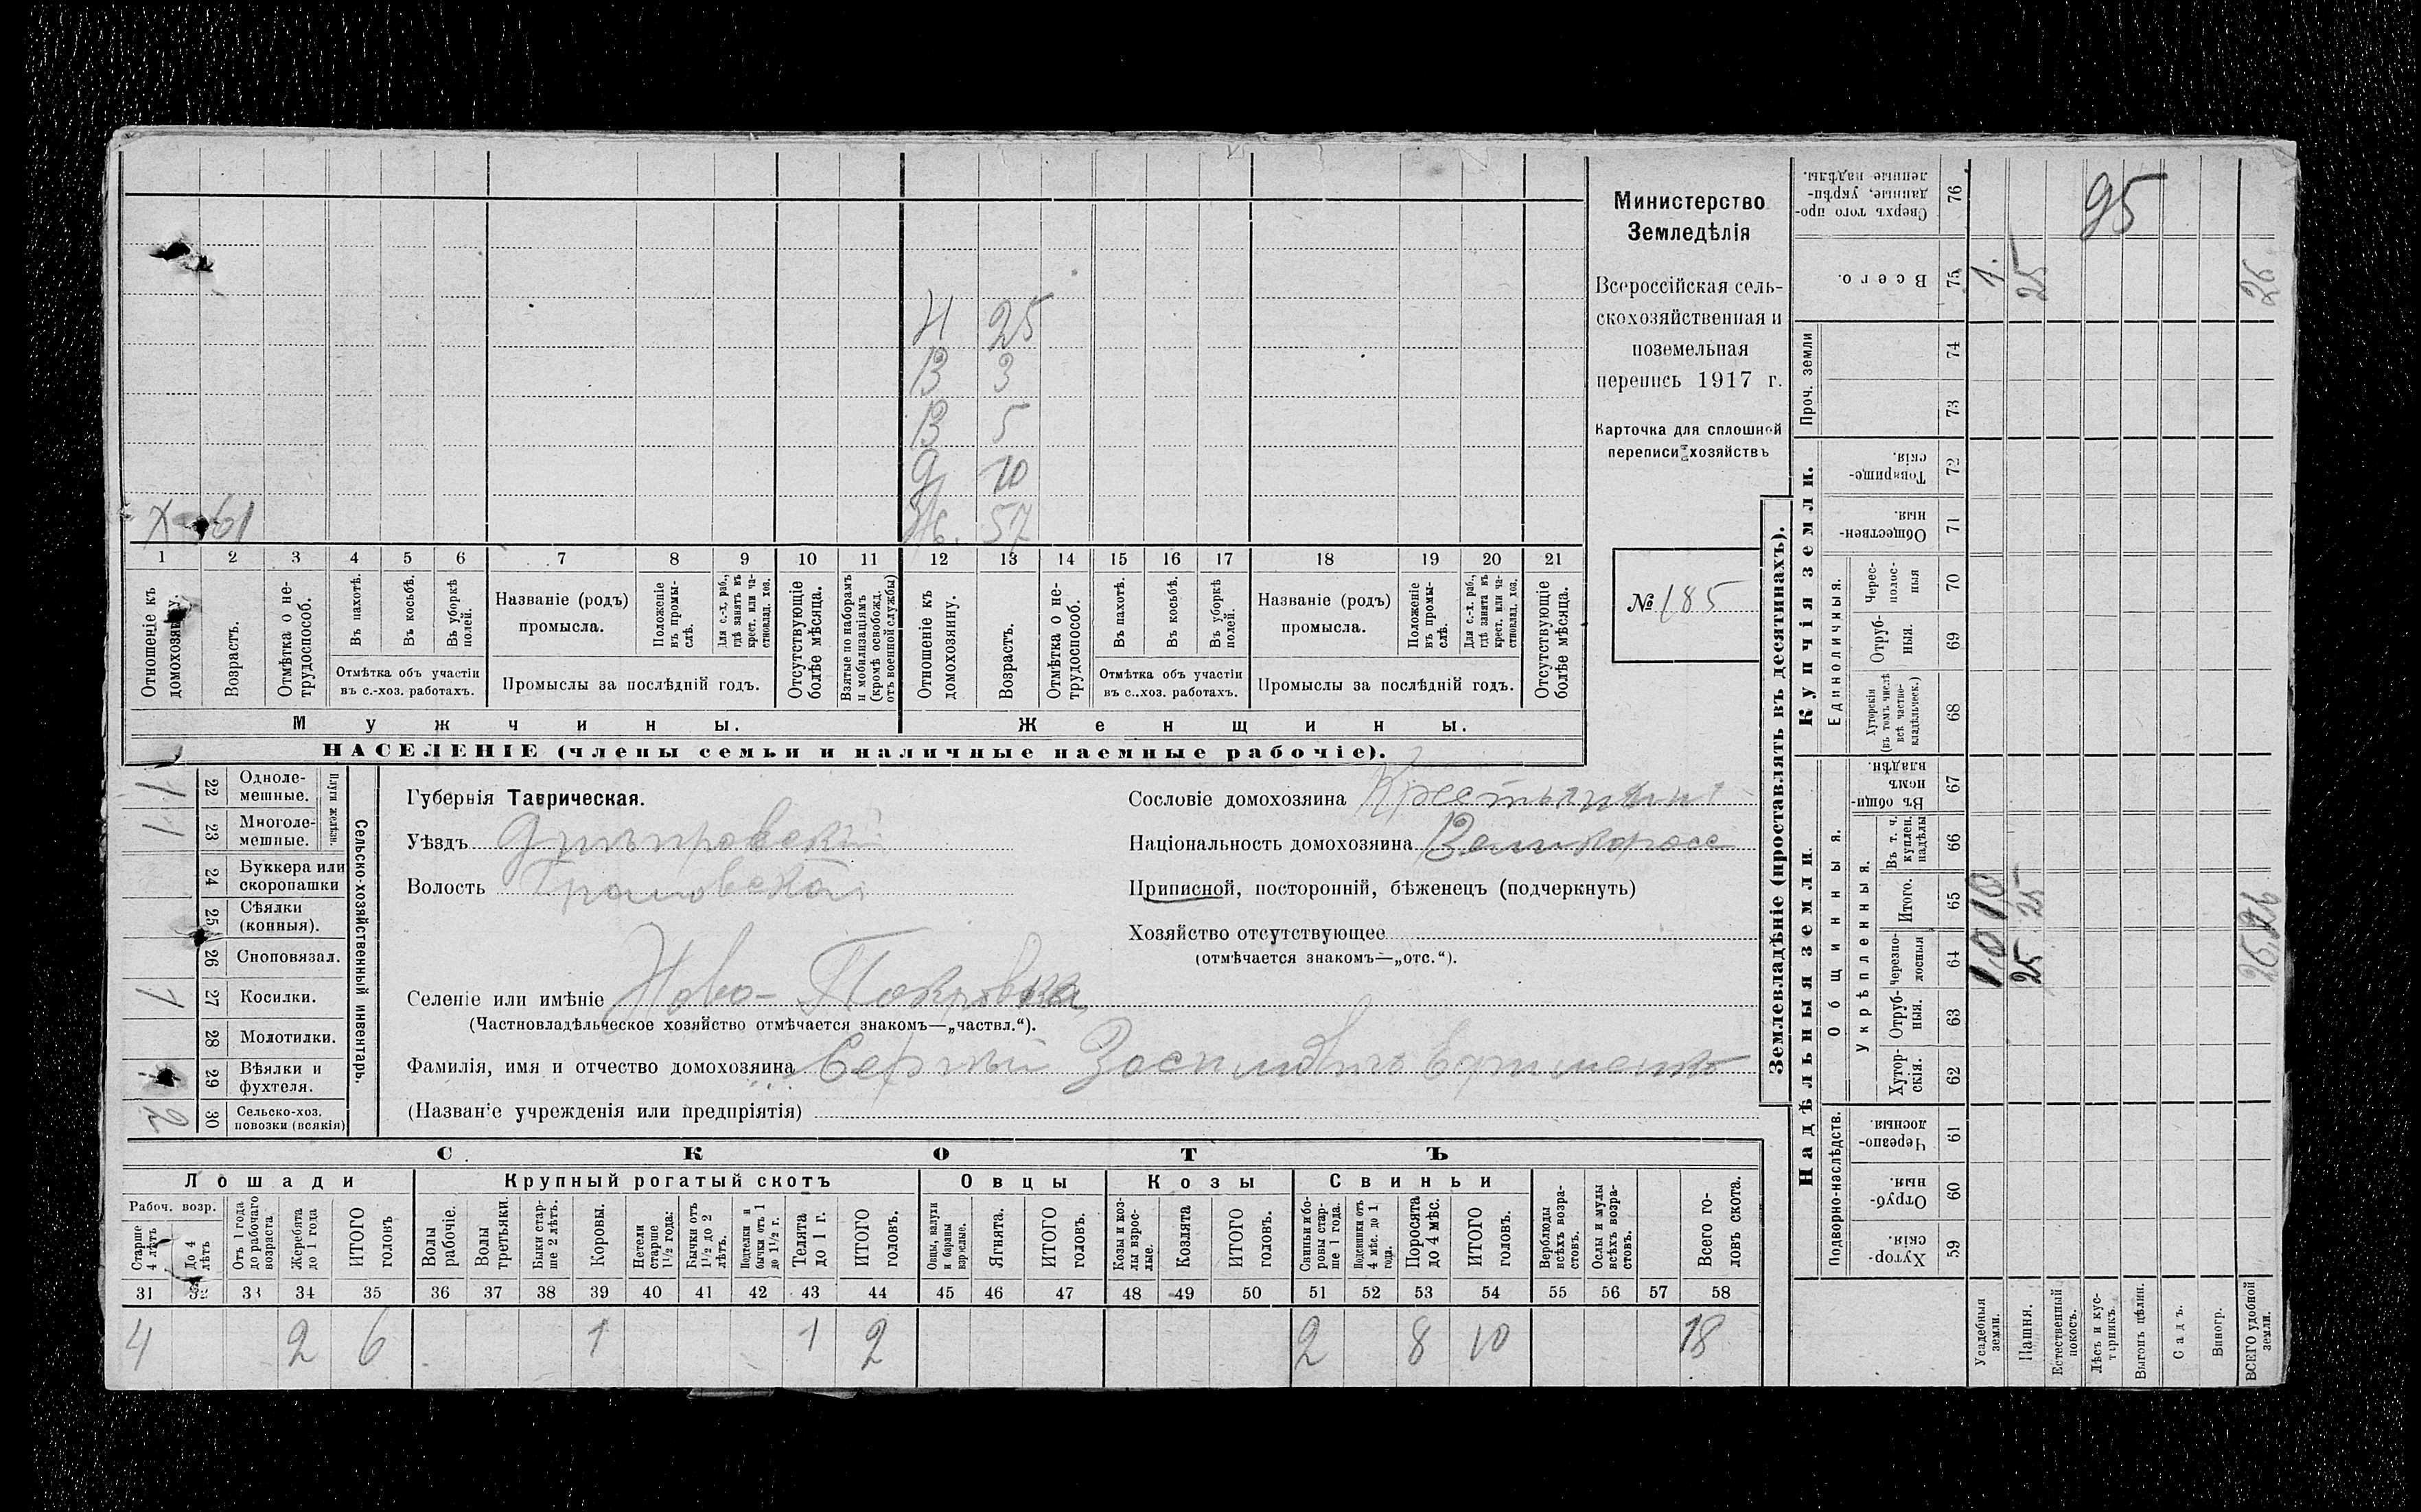 95
Н 25
В 3
В 5
Д 10
Х 61
Ж. 57
1 2 3 4 5 6 7 8 9 10 11 12 13 14 15 16 17 18 19 20 21
Отношеніе къ домохозяину.
Возрастъ.
Отмѣтка о не-
трудоспособ.
Въ пахотѣ.
Въ косьбѣ.
Въ уборкѣ полей.
Отмѣтка объ участіи
въ с.-хоз. работахъ.
Названіе (родъ)
промысла.
Положеніе въ промы-
слѣ.
Для с.-х. раб., гдѣ занятъ въ крест. или ча-
стновлад. хоз.
Промыслы за послѣдній годъ.
Отсутствующіе болѣе мѣсяца.
Взятые по наборамъ и мобилизаціямъ (кромѣ освобожд. отъ военной службы)
Отношеніе къ домохозяину.
Возрастъ.
Отмѣтка о не-
трудоспособ.
Въ пахотѣ.
Въ косьбѣ.
Въ уборкѣ полей.
Отмѣтка объ участіи
въ с.-хоз. работахъ.
Названіе (родъ)
промысла.
Положеніе въ промы-
слѣ.
Для с.-х. раб., гдѣ занята въ крест. или ча-
стновлад. хоз.
Промыслы за послѣдній годъ.
Отсутствующіе болѣе мѣсяца.
Мужчины.
Женщины.
НАСЕЛЕНІЕ (члены семьи и наличные наемные рабочіе).
Министерство
Земледѣлія
Всероссійская сель-
скохозяйственная и
поземельная
перепись 1917 г.
Карточка для сплошной
переписи хозяйствъ
№ 185
1 22 Одноле-
мешные.
1 23 Многоле-
мешные.
Плуги желѣзн.
24 Буккера или
скоропашки
25 Сѣялки
(конныя).
26 Сноповязал.
1 27 Косилки.
28 Молотилки.
29 Вѣялки и
фухтеля.
2 30 Сельско-хоз.
повозки (всякія)
Сельско-хозяйственный инвентарь.
Губернія Таврическая.
Уѣздъ Днѣпровскій
Волость
Селеніе или имѣніе Ново-Покровка
(Частновладѣльческое хозяйство отмѣчается знакомъ—„частвл.“).
Фамилія, имя и отчество домохозяина
(Названіе учрежденія или предпріятія)
Сословіе домохозяина Крестьянинъ
Національность домохозяина Великороссъ
Приписной, посторонній, бѣженецъ (подчеркнуть)
Хозяйство отсутствующее
(отмѣчается знакомъ—„отс.“).
СКОТЪ
Лошади
Крупный рогатый скотъ
Овцы
Козы
Свиньи
Рабоч. возр.
Старше 4 лѣтъ
До 4 лѣтъ
Отъ 1 года до рабочаго возраста
Жеребята до 1 года
ИТОГО головъ
Волы рабочіе.
Волы третьяки.
Быки стар-
ше 2 лѣтъ.
Коровы.
Нетели старше 1½ года:
Бычки отъ 1½ до 2 лѣтъ.
Подтелки и бычки отъ 1 до 1½ г.
Телята до 1 г.
ИТОГО головъ.
Овцы, валухи и бараны взрослые.
Ягнята.
ИТОГО головъ.
Козы и коз-
лы взрос-
лые.
Козлята
ИТОГО головъ.
Свиньи и бо-
ровы стар-
ше 1 года.
Подсвинки отъ 4 мѣс. до 1 года.
Поросята до 4 мѣс.
ИТОГО головъ.
Верблюды всѣхъ возра-
стовъ.
Ослы и мулы всѣхъ возра-
стовъ.
Всего го-
ловъ скота.
31 32 33 34 35 36 37 38 39 40 41 42 43 44 45 46 47 48 49 50 51 52 53 54 55 56 57 58
4 2 6 1 1 2 2 8 10 18
Землевладѣніе (проставлять въ десятинахъ).
Надѣльныя земли.
Купчія земли.
Проч. земли
Подворно-наслѣдств.
Общинныя.
Укрѣпленныя.
Единоличныя.
Хутор-
скія. 59
Отруб-
ныя. 60
Черезпо-
лосныя. 61
Хутор-
скія. 62
Отруб-
ныя. 63
черезпо-
лосныя 64
Итого. 65
Въ т. ч. куплен. надѣлы 66
Въ общи-
номъ владѣн. 67
Хуторскія (въ томъ числѣ всѣ частно-
владѣльческ.) 68
Отруб-
ныя. 69
Черес-
полос-
ныя 70
Обществен-
ныя. 71
Товарище-
скія. 72
73
74
Всего. 75
Сверхъ того про-
данные, укрѣп-
ленные надѣлы. 76
Усадебныя земли.
Пашня.
Естественный покосъ.
Лѣсъ и кус-
тарникъ.
Выгонъ цѣлин.
Садъ.
Виногр.
ВСЕГО удобной земли.
1.
25
26
25
25